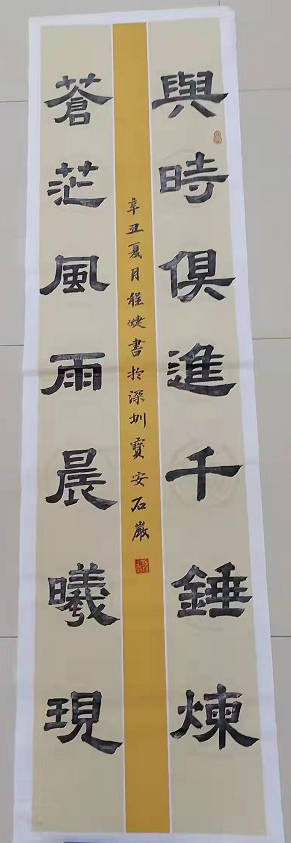 與時俱進千錘煉
蒼茫風雨晨曦現
辛丑夏月程婕書於深圳寶安石巖